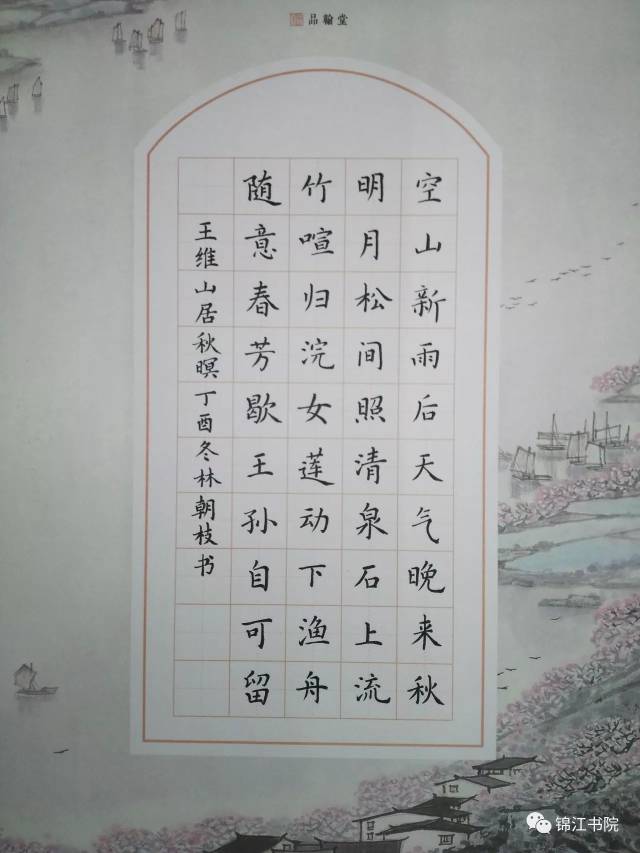 品翰堂
空山新雨后天气晚来秋
明月松间照清泉石上流
竹喧归浣女莲动下渔舟
随意春芳歇王孙自可留
王维山居秋暝丁酉冬林朝枝书
锦江书院